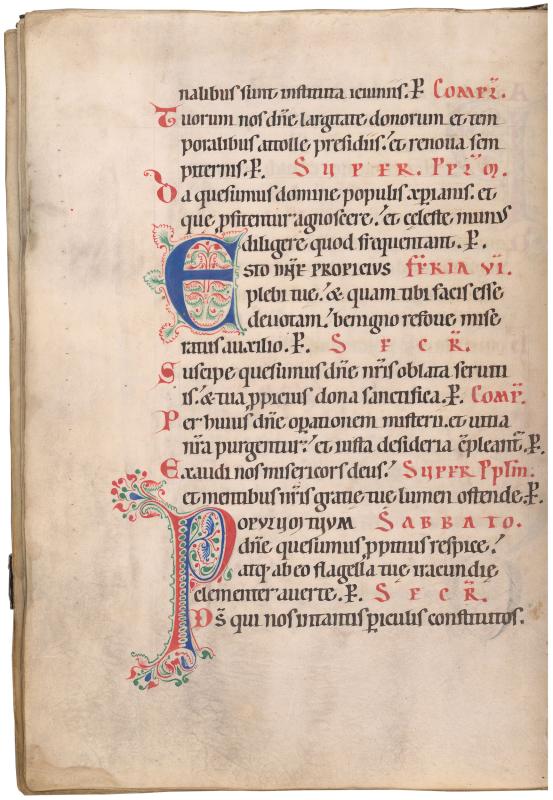 nalibus sunt instituta ieiuniis. P̲ Compl̄.
Tuorum nos dn̄e largitate donorum et tem
poralibus attolle presidiis: et renoua sem
piternis. P̲. SUPER. Pp̄lm̄.
Da quesumus domine populis xp̄ianis. et
que ꝓfitentur agnoscere: et celeste munus
diligere quod frequentant. P̲.
ESTO nr̄e PROPICIUS FERIA VI.
plebi tue: & quam tibi facis esse
deuotam: benigno refoue mise
ratus auxilio. P̲. SECR̄.
Suscipe quesumus dn̄e nr̄is oblata seruiti
is: & tua ꝓpicius dona sanctifica. P̲. Comp̄.
Per huius dn̄e oꝑationem misterii. et uitia
nr̄a purgentur: et iusta desideria cō̄pleant̄. P̲.
Exaudi nos misericors deus: SUPER Pp̄lm̄.
et mentibus nr̄is gratie tue lumen ostende. P̲.
POPULUM TUUM SABBATO.
dn̄e quesumus ꝓpitius respice:
atq; ab eo flagella tue iracundie
clementer auerte. P̲. SECR̄.
Ds̄ qui nos in tantis ꝑiculis constitutos.